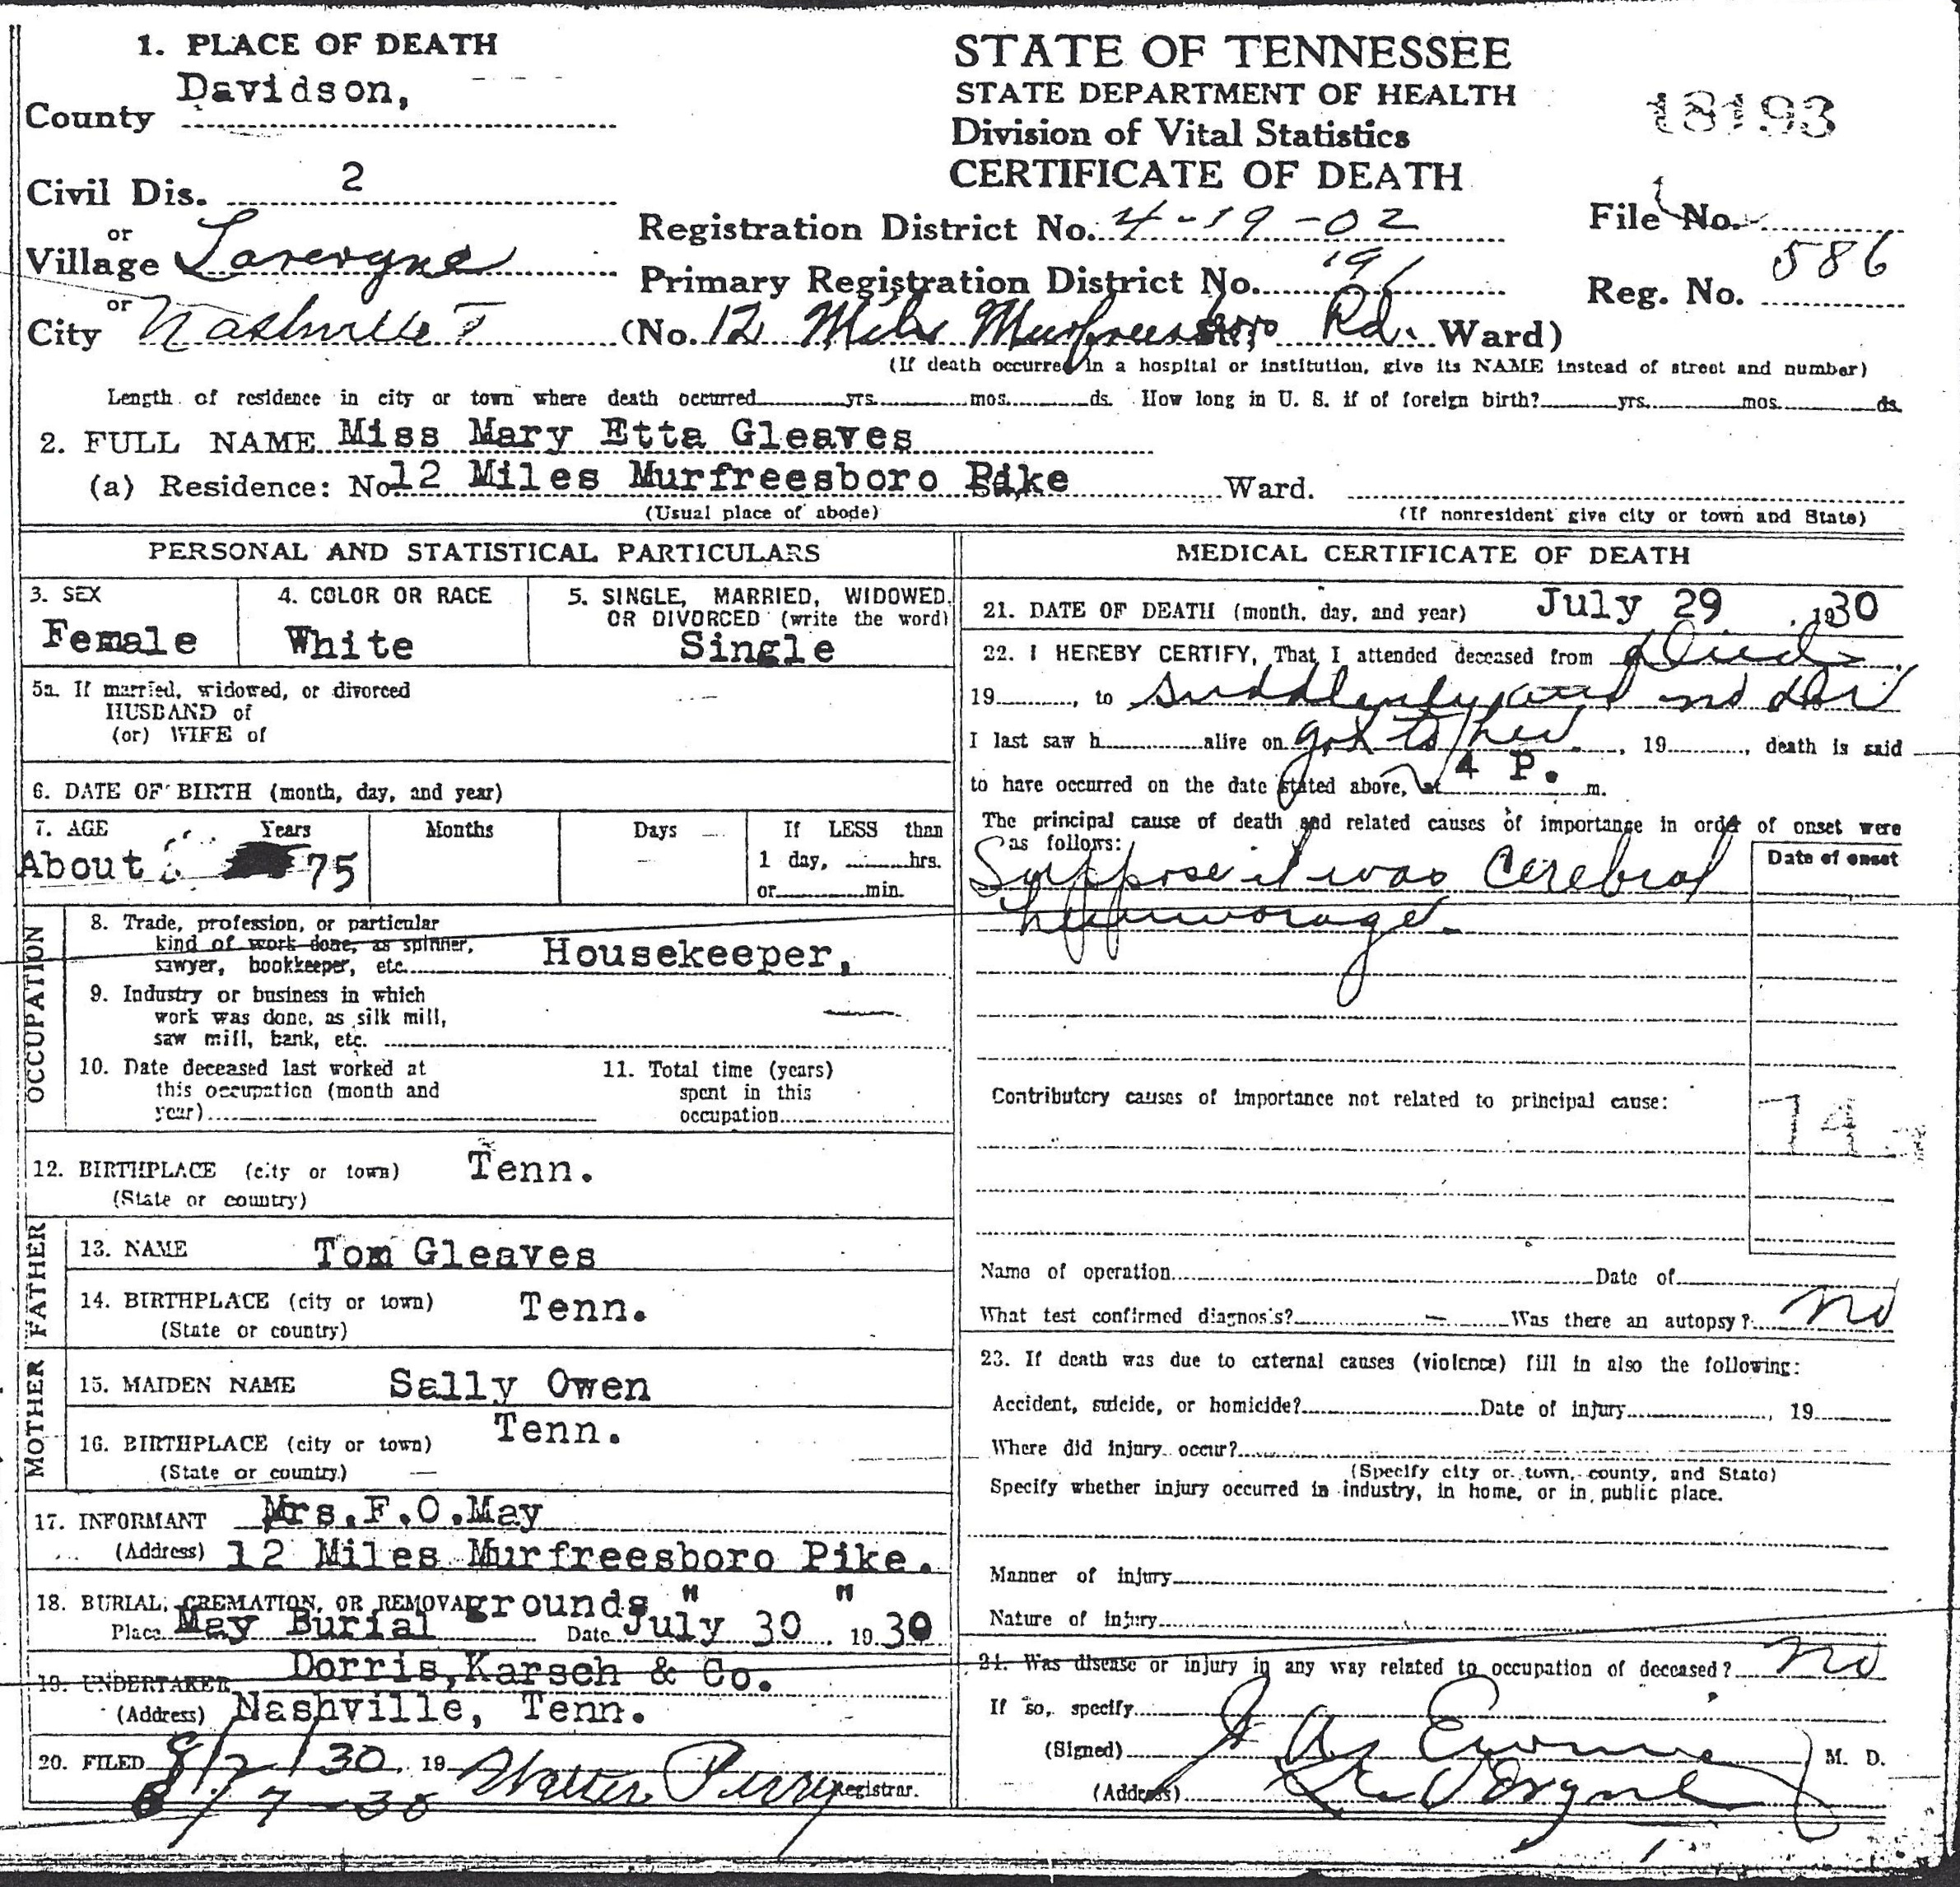 1. PLACE OF DEATH
County Davidson,
Civil Dis. 2
or
Village Lavergne
or
City Nashville T (No. 12 Miles Murfreesboro Rd. Ward)
STATE OF TENNESSEE
STATE DEPARTMENT OF HEALTH
Division of Vital Statistics
CERTIFICATE OF DEATH
18193
Registration District No. 4-19-02
File No.
Primary Registration District No. 191
Reg. No. 586
(If death occurred in a hospital or institution, give its NAME instead of street and number)
Length of residence in city or town where death occurred yrs. mos. ds. How long in U. S. if of foreign birth? yrs. mos. ds.
2. FULL NAME Miss Mary Etta Gleaves
(a) Residence: No. 12 Miles Murfreesboro Pike Ward.
(Usual place of abode) (If nonresident give city or town and State)
PERSONAL AND STATISTICAL PARTICULARS
3. SEX
Female
4. COLOR OR RACE
White
5. SINGLE, MARRIED, WIDOWED,
OR DIVORCED (write the word)
Single
5a. If married, widowed, or divorced
HUSBAND of
(or) WIFE of
6. DATE OF BIRTH (month, day, and year)
7. AGE Years Months Days If LESS than
About 75 1 day, hrs.
or min.
OCCUPATION
8. Trade, profession, or particular
kind of work done, as spinner,
sawyer, bookkeeper, etc. Housekeeper,
9. Industry or business in which
work was done, as silk mill,
saw mill, bank, etc.
10. Date deceased last worked at
this occupation (month and
year)
11. Total time (years)
spent in this
occupation
12. BIRTHPLACE (city or town) Tenn.
(State or country)
FATHER
13. NAME Tom Gleaves
14. BIRTHPLACE (city or town) Tenn.
(State or country)
MOTHER
15. MAIDEN NAME Sally Owen
16. BIRTHPLACE (city or town) Tenn.
(State or country)
17. INFORMANT Mrs.F.O.May
(Address) 12 Miles Murfreesboro Pike.
18. BURIAL, CREMATION, OR REMOVAL grounds " "
Place May Burial Date July 30 1930
19. UNDERTAKER Dorris,Karsch & Co.
(Address) Nashville, Tenn.
20. FILED 8/2/30, 19 Walter Perry Registrar.
8/7-30
MEDICAL CERTIFICATE OF DEATH
21. DATE OF DEATH (month, day, and year) July 29 , 1930
22. I HEREBY CERTIFY, That I attended deceased from died
19 , to suddenly and no dr
I last saw h alive on got to her , 19 , death is said
to have occurred on the date stated above, at 4 P. m.
The principal cause of death and related causes of importance in order of onset were
as follows:
Date of onset
Suppose it was Cerebral
hemorrage.
Contributory causes of importance not related to principal cause:
74
Name of operation Date of
What test confirmed diagnosis? Was there an autopsy? no
23. If death was due to external causes (violence) fill in also the following:
Accident, suicide, or homicide? Date of injury , 19
Where did injury occur?
(Specify city or town, county, and State)
Specify whether injury occurred in industry, in home, or in public place.
Manner of injury
Nature of injury
24. Was disease or injury in any way related to occupation of deceased? no
If so, specify
(Signed) M. D.
(Address) La Vergne